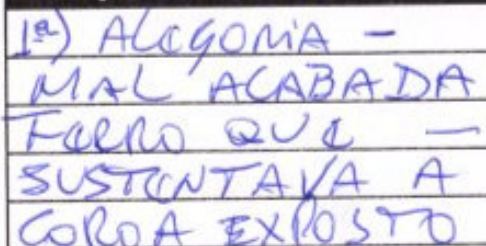 1ª) ALEGORIA -
MAL ACABADA
FERRO QUE -
SUSTENTAVA A
COROA EXPOSTO